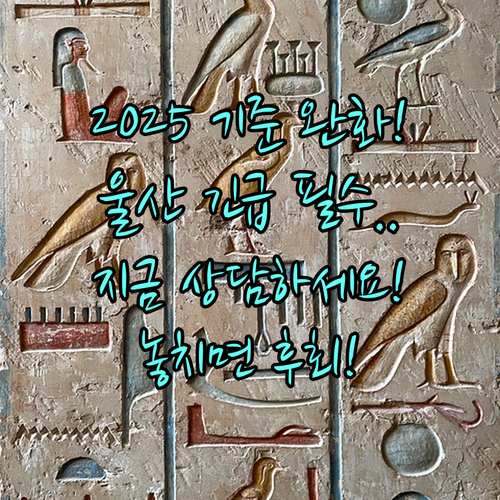 2025 기준 완화!
울산 긴급 필수..
지금 상담하세요!
놓치면 후회!